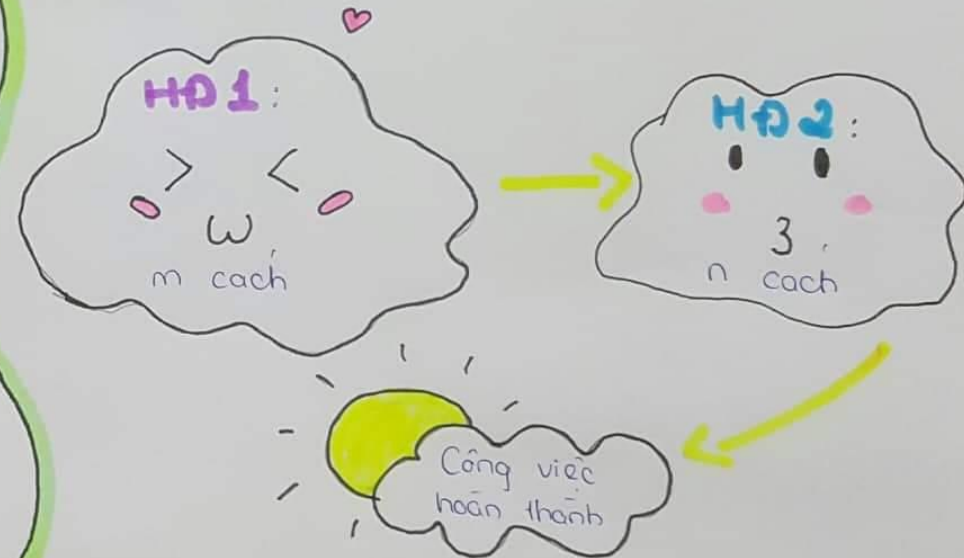 HĐ1:
m cách
HĐ2:
n cách
Công việc
hoàn thành